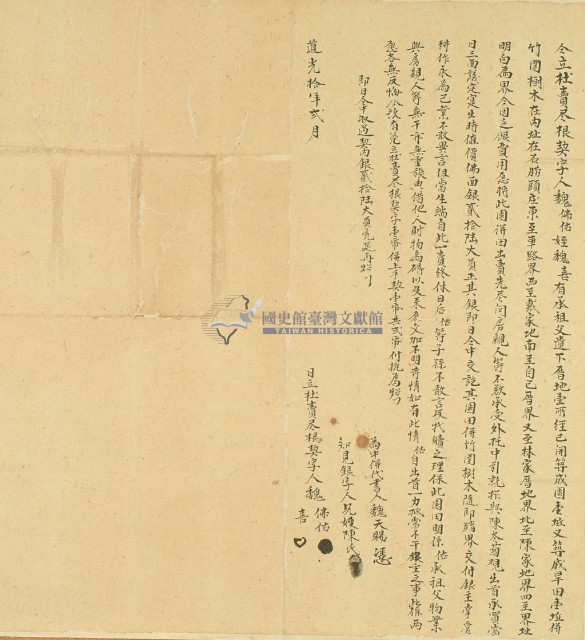 仝立杜賣尽根契字人魏佛佑 姪魏喜有承祖父遺下厝地壹所經已開筭成園壹坵又筭成旱田壹坵併
竹圍樹木在內址在石 頭庄東至車路界西至戴家地南至自己厝界又至林家厝地界北至陳家地界四至界址
明白為界今因乏銀費用愿將此園併田出賣先尽問房親人等不欲承受外托中引就 與陳 出首承買當
日三面議定定生時值價佛面銀貳拾陸大員正其銀即日仝中交訖其園田併竹圍樹木隨即踏界交付銀主掌管
耕作永為己業不敢異言阻當生端自此一賣終休日后佑等子孫不敢言及找贖之理保此園田明係佑承祖父物業
與房親人等無干亦無重張典借他人財物為碍以及來歷交加不明等情如有此情佑自出首一力抵當不干銀主之事此係兩
愿各無反悔今欲有憑立杜賣尽根契字壹帋併上手契壹帋共弍帋付執為炤
即日仝中收過契內銀貳拾陸大員完足再炤
為中併代書人魏天賜
知見銀字人兄嫂陳氏
道光拾年弍月 日立杜賣尽根契字人魏佛佑 喜
國史館臺灣文獻館
TAIWAN HISTORICA